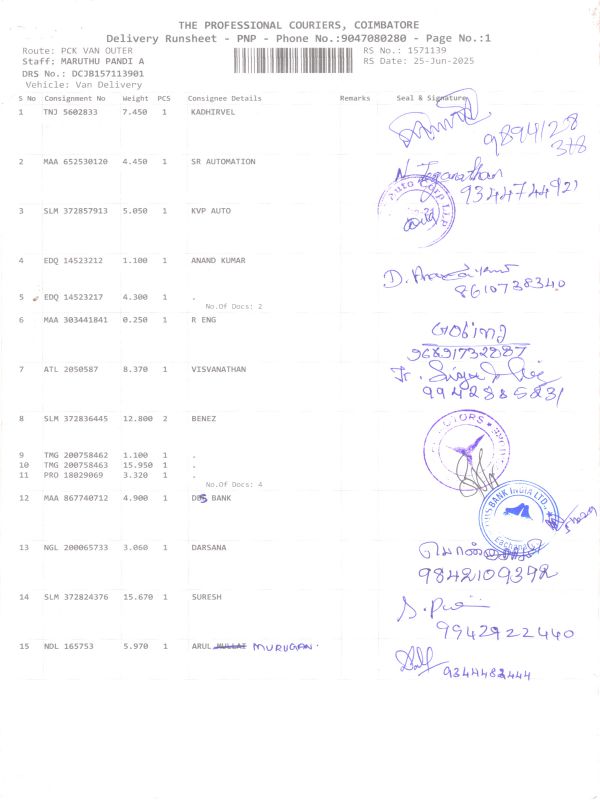 THE PROFESSIONAL COURIERS, COIMBATORE
Delivery Runsheet - PNP - Phone No.:9047080280 - Page No.:1
Route: PCK VAN OUTER RS No.: 1571139
Staff: MARUTHU PANDI A RS Date: 25-Jun-2025
DRS No.: DCJB157113901
Vehicle: Van Delivery
S No Consignment No Weight PCS Consignee Details Remarks Seal & Signature
1 TNJ 5602833 7.450 1 KADHIRVEL
9894128
378
2 MAA 652530120 4.450 1 SR AUTOMATION
N. Jeganathan
9344744921
3 SLM 372857913 5.050 1 KVP AUTO
Auto Corp LLP
4 EDQ 14523212 1.100 1 ANAND KUMAR
8610738340
5 EDQ 14523217 4.300 1 .
No.Of Docs: 2
6 MAA 303441841 0.250 1 R ENG
96891732887
7 ATL 2050587 8.370 1 VISVANATHAN
9942885831
8 SLM 372836445 12.800 2 BENEZ
9 TMG 200758462 1.100 1 .
10 TMG 200758463 15.950 1 .
11 PRO 18029069 3.320 1 .
No.Of Docs: 4
12 MAA 867740712 4.900 1 DBS BANK
DBS BANK INDIA LTD.
13 NGL 200065733 3.060 1 DARSANA
9842109392
14 SLM 372824376 15.670 1 SURESH
9942922440
15 NDL 165753 5.970 1 ARUL MULLAI MURUGAN.
9344482444